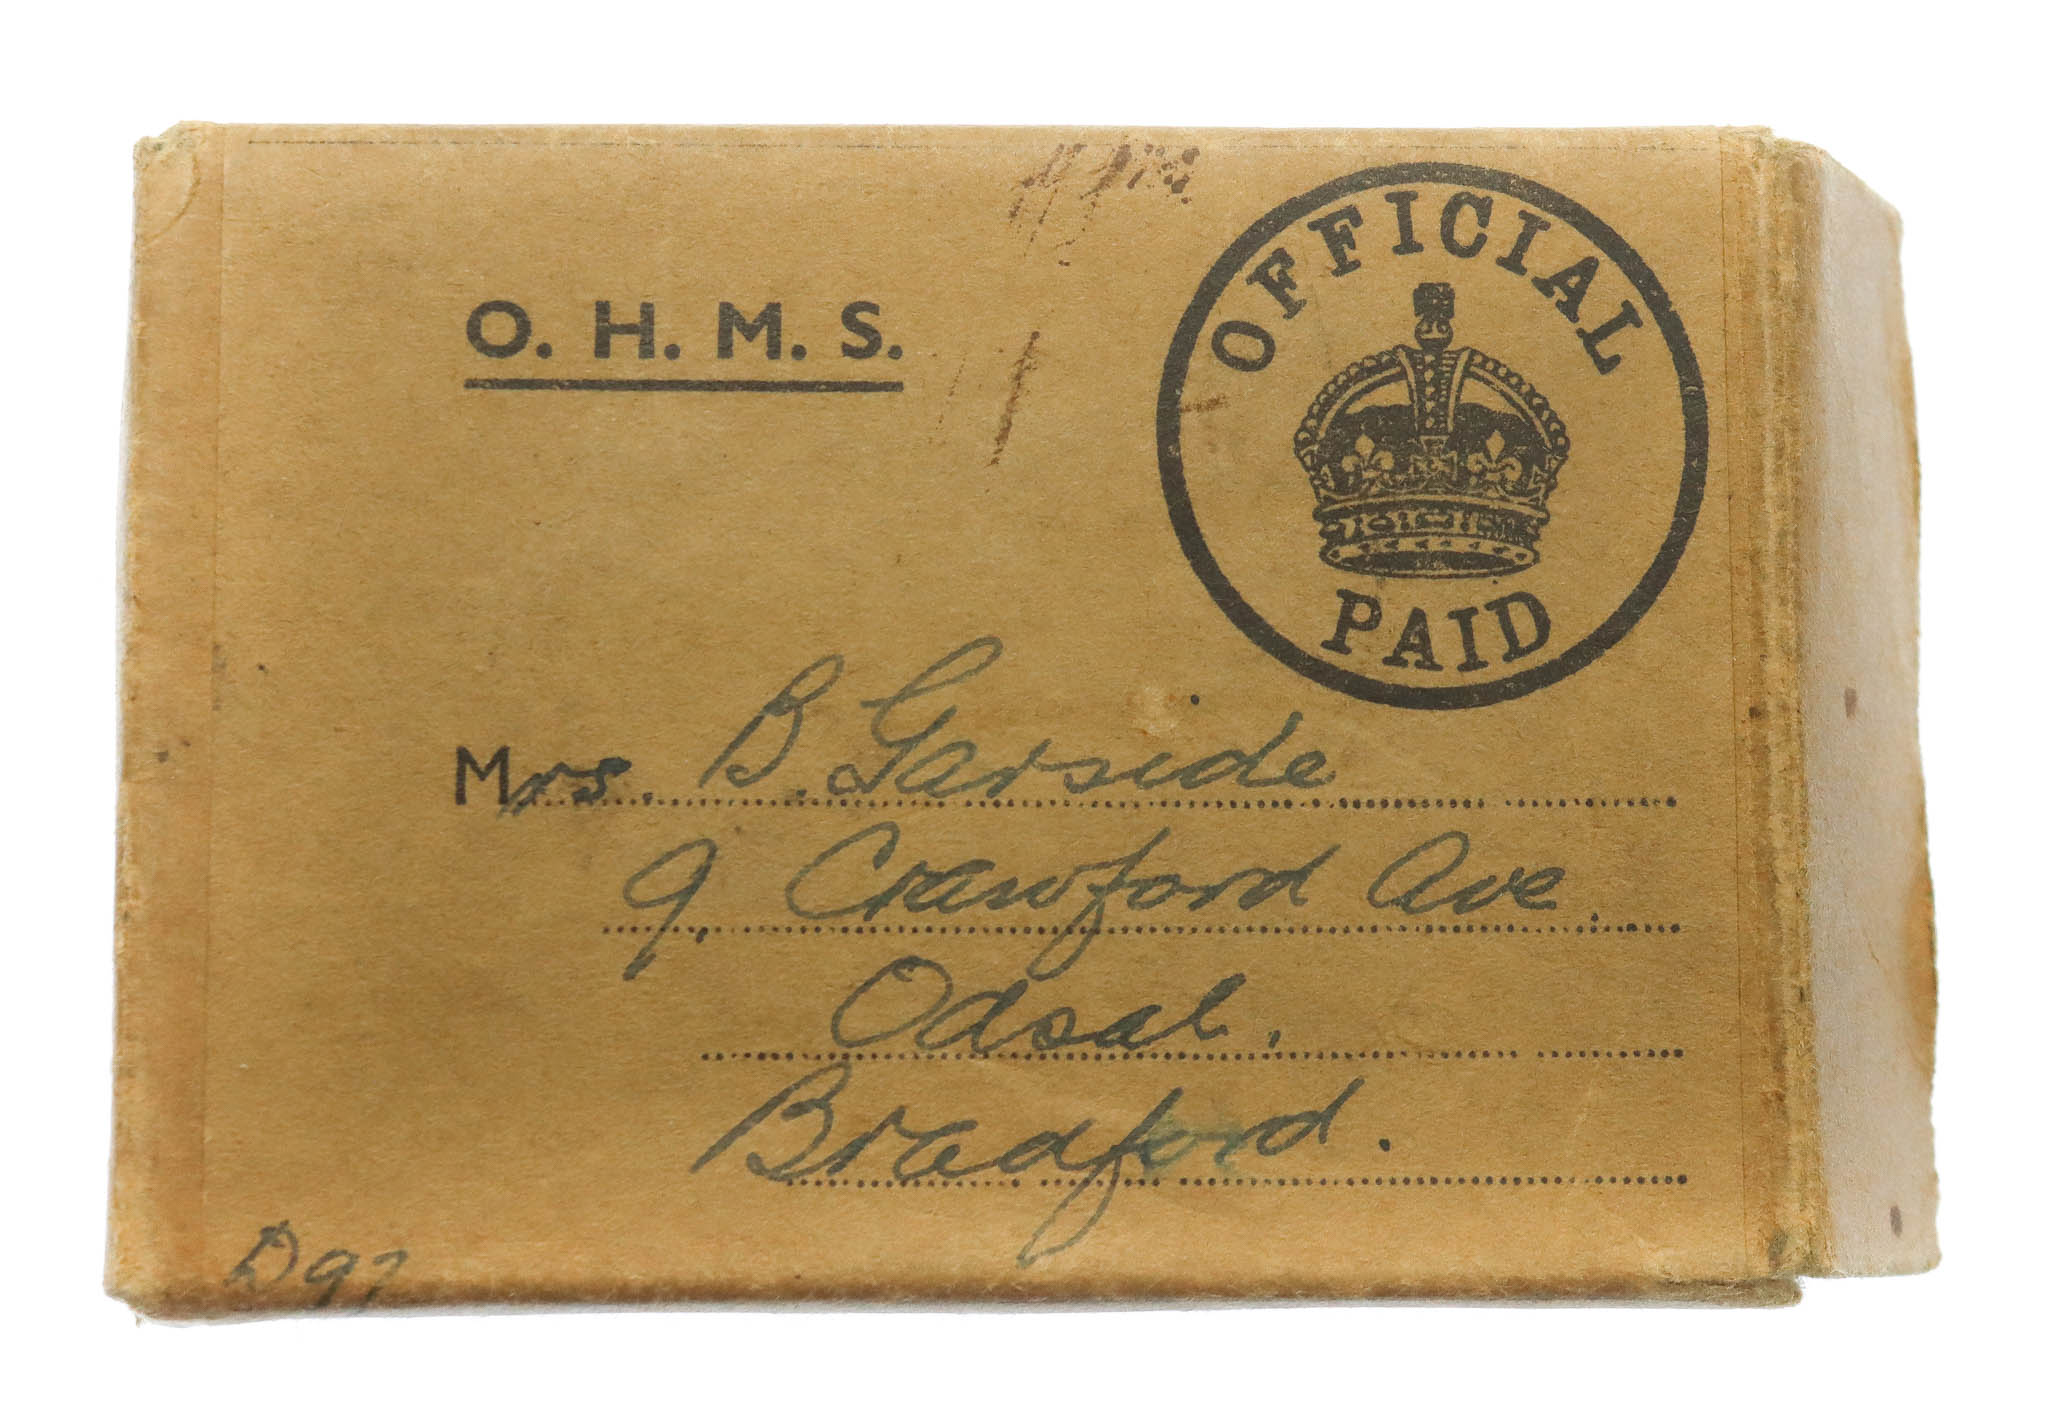 O. H. M. S.
OFFICIAL
PAID
Mrs. B. Garside
9. Crawford Ave.
Odsal.
Bradford.
D97